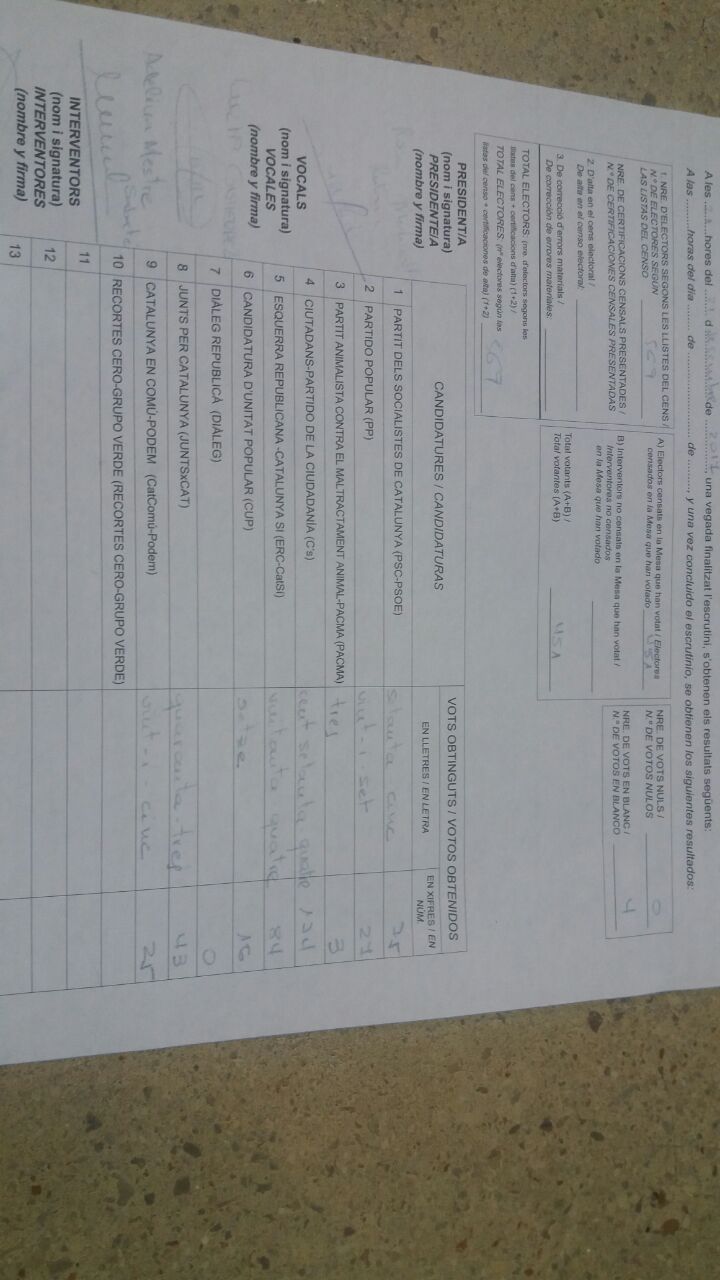 A les ........ hores del ........ d ........ de 2017, una vegada finalitzat l'escrutini, s'obtenen els resultats següents:
A las ........ horas del día ........ de ........ de ........, y una vez concluido el escrutinio, se obtienen los siguientes resultados:
1. NRE. D'ELECTORS SEGONS LES LLISTES DEL CENS /
N.º DE ELECTORES SEGÚN
LAS LISTAS DEL CENSO 567
NRE. DE CERTIFICACIONS CENSALS PRESENTADES /
N.º DE CERTIFICACIONES CENSALES PRESENTADAS
2. D'alta en el cens electoral /
De alta en el censo electoral:
3. De correcció d'errors materials /
De corrección de errores materiales:
TOTAL ELECTORS. (nre. d'electors segons les
llistes del cens + certificacions d'alta) (1+2) /
TOTAL ELECTORES. (nº electores según las
listas del censo + certificaciones de alta) (1+2) 567
A) Electors censats en la Mesa que han votat / Electores
censados en la Mesa que han votado 451
B) Interventors no censats en la Mesa que han votat /
Interventores no censados
en la Mesa que han votado
Total votants (A+B) /
Total votantes (A+B) 451
NRE. DE VOTS NULS /
N.º DE VOTOS NULOS 0
NRE. DE VOTS EN BLANC /
N.º DE VOTOS EN BLANCO 4
CANDIDATURES / CANDIDATURAS
VOTS OBTINGUTS / VOTOS OBTENIDOS
EN LLETRES / EN LETRA
EN XIFRES / EN NÚM.
1 PARTIT DELS SOCIALISTES DE CATALUNYA (PSC-PSOE) setanta cinc 75
2 PARTIDO POPULAR (PP) vint-i set 27
3 PARTIT ANIMALISTA CONTRA EL MALTRACTAMENT ANIMAL-PACMA (PACMA) tres 3
4 CIUTADANS-PARTIDO DE LA CIUDADANÍA (C's) cent setanta quatre 174
5 ESQUERRA REPUBLICANA -CATALUNYA SI (ERC-CatSí) vuitanta quatre 84
6 CANDIDATURA D'UNITAT POPULAR (CUP) setze 16
7 DIÀLEG REPUBLICÀ (DIÀLEG) 0
8 JUNTS PER CATALUNYA (JUNTSxCAT) quaranta-tres 43
9 CATALUNYA EN COMÚ-PODEM (CatComú-Podem) vint-i-cinc 25
10 RECORTES CERO-GRUPO VERDE (RECORTES CERO-GRUPO VERDE)
11
12
13
PRESIDENT/A
(nom i signatura)
PRESIDENTE/A
(nombre y firma)
VOCALS
(nom i signatura)
VOCALES
(nombre y firma)
Mestre
INTERVENTORS
(nom i signatura)
INTERVENTORES
(nombre y firma)